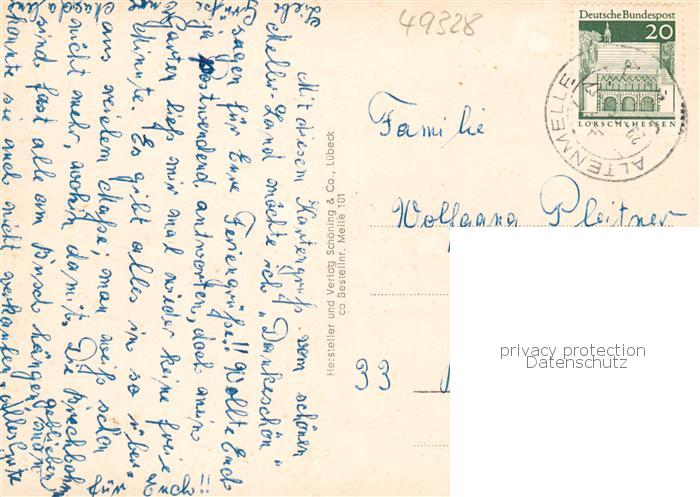 49328
Deutsche Bundespost
20
LORSCH/HESSEN
ALTENMELLE
Liebe
Mit diesem Kartengruß vom schönen
Meller Land möchte ich "Dankeschön"
sagen für Eure Feriengrüße!! Wollte Euch
ja postwendend antworten, doch mein
Garten ließ mir mal wieder keine freie
Minute. Es gibt alles in so über-
aus vielem Maße, man weiß schon
nicht mehr, wohin damit. Die
sind fast alle am Busch hängen
geblieben
konnte sie auch nicht verkaufen. Alles Gute
Hersteller und Verlag Schöning & Co., Lübeck
ca Bestellnr. Melle 101
Familie
Wolfgang Pleitner
33
privacy protection
Datenschutz